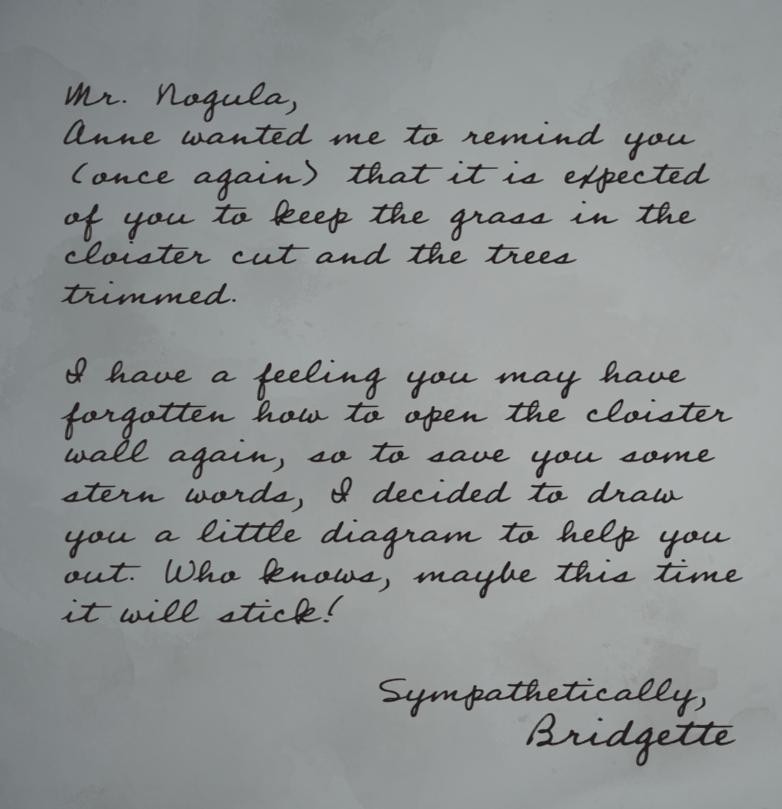 Mr. Nogula,
Anne wanted me to remind you
(once again) that it is expected
of you to keep the grass in the
cloister cut and the trees
trimmed.
I have a feeling you may have
forgotten how to open the cloister
wall again, so to save you some
stern words, I decided to draw
you a little diagram to help you
out. Who knows, maybe this time
it will stick!
Sympathetically,
Bridgette